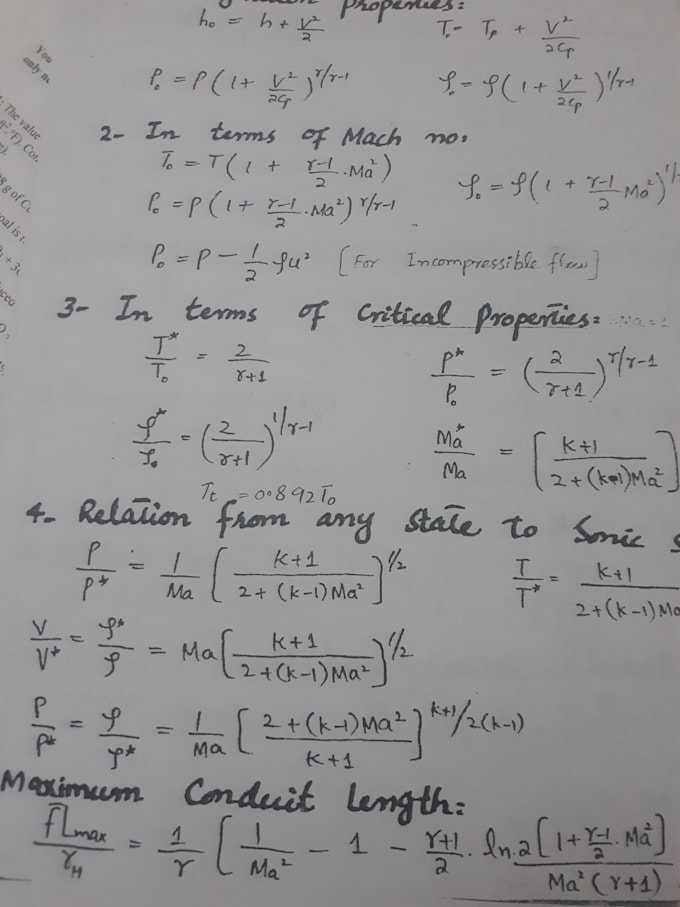 Properties:
h₀ = h + V²/2
T₀ = T, + V²/2Cp
P₀ = P(1 + V²/2Cp)^γ/γ-1
ρ₀ = ρ(1 + V²/2Cp)^1/γ-1
2- In terms of Mach no:
T₀ = T(1 + γ-1/2 . Ma²)
ρ₀ = ρ(1 + γ-1/2 Ma²)^1/
P₀ = P(1 + γ-1/2 . Ma²)^γ/γ-1
P₀ = P - 1/2 ρu² [For Incompressible flow]
3- In terms of Critical Properties:
T*/T₀ = 2/γ+1
P*/P₀ = (2/γ+1)^γ/γ-1
ρ*/ρ₀ = (2/γ+1)^1/γ-1
Ma*/Ma = [K+1/2+(k-1)Ma²]
Tt = 0.892T₀
4- Relation from any state to Sonic s
P/P* = 1/Ma [K+1/2+(k-1)Ma²]^1/2
T/T* = K+1/2+(k-1)Ma
V/V* = ρ*/ρ = Ma[K+1/2+(k-1)Ma²]^1/2
P/P* = ρ/ρ* = 1/Ma [2+(k-1)Ma²/K+1]^k+1/2(k-1)
Maximum Conduit length:
f̄Lmax/γH = 1/γ [1/Ma² - 1 - γ+1/2 . ln.2[1+γ-1/2 . Ma²]/Ma²(γ+1)
You
only m
The value
°F). Con
g of C